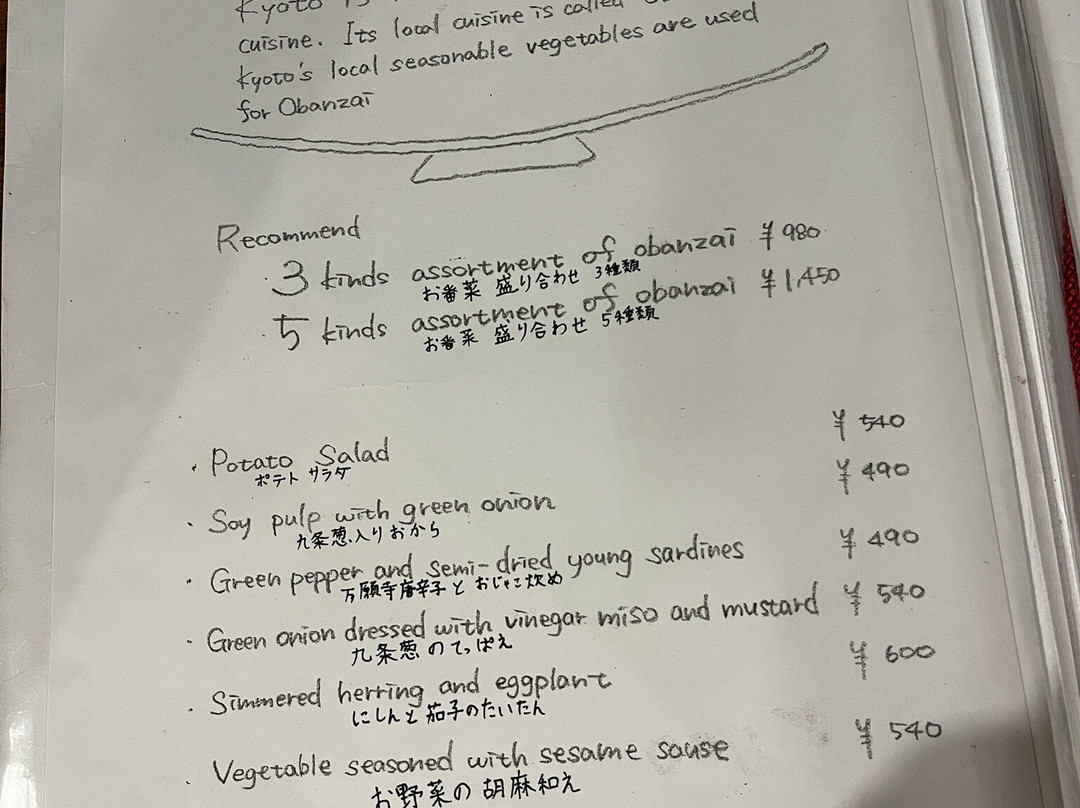 Kyoto
cuisine. Its local cuisine is called
Kyoto's local seasonable vegetables are used
for Obanzai
Recommend
3 kinds assortment of obanzai ¥980
お番菜 盛り合わせ 3種類
5 kinds assortment of obanzai ¥1,450
お番菜 盛り合わせ 5種類
· Potato Salad ¥540
ポテト サラダ
· Soy pulp with green onion ¥490
九条葱入りおから
· Green pepper and semi-dried young sardines ¥490
万願寺唐辛子と おじゃこ炊め
· Green onion dressed with vinegar miso and mustard ¥540
九条葱のてっぱえ
· Simmered herring and eggplant ¥600
にしんと茄子のたいたん
· Vegetable seasoned with sesame sause ¥540
お野菜の胡麻和え